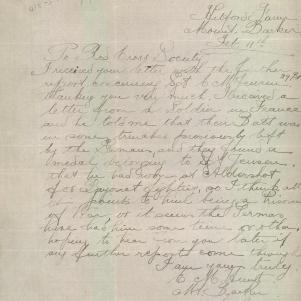 Hilton Farm
Mount Barker
Feb 11th
To Red Cross Society
I received your letter with the further
report concerning Sgt
thanking you very much, I received a
letter from a Soldier in France
and he told me that their Batt was
in some trenches previously left
by the Germans, and they found a
medal belonging to Sgt
that he had won at Aldershot
so I think all
points to him being a Prisoner
of War, as it seems the Germans
have had him some time or other,
hoping to hear from you later if
any further reports come through
I am yours truly
Mt Barker